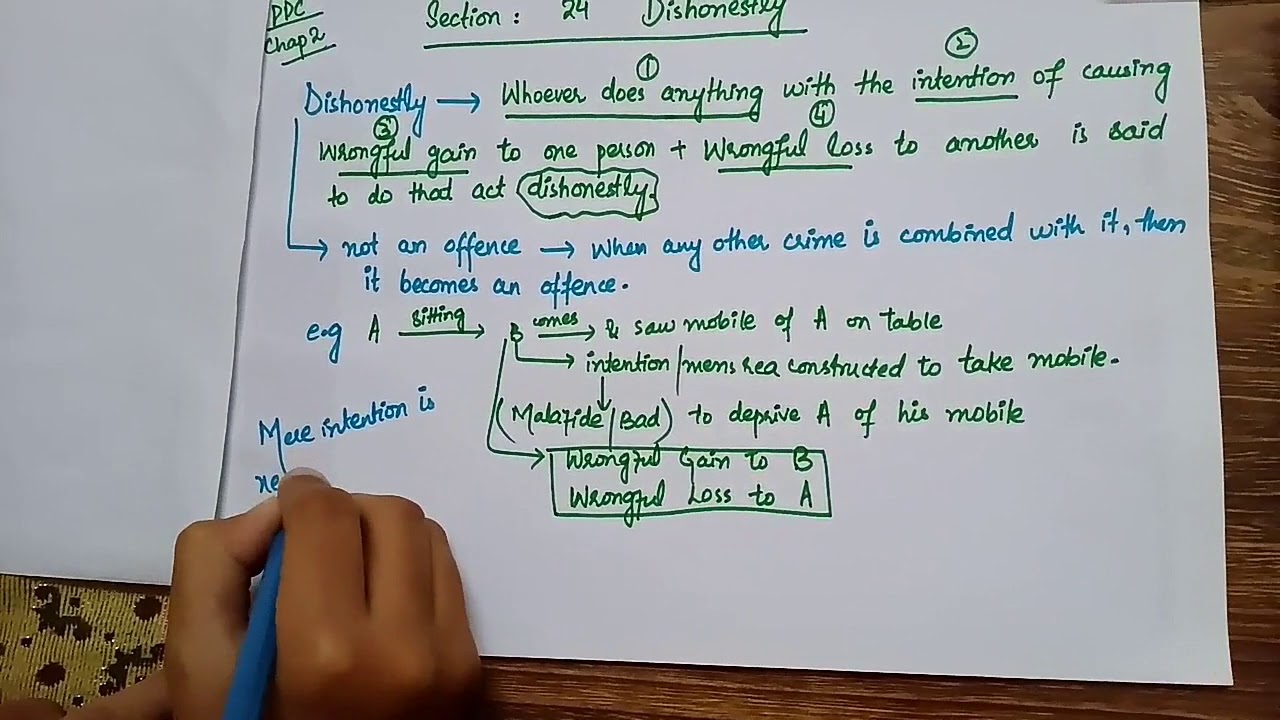 PPC
Chap 2
Section : 24 Dishonestly
① ②
Dishonestly → Whoever does anything with the intention of causing
③ ④
wrongful gain to one person + wrongful loss to another is said
to do that act dishonestly.
→ not an offence → When any other crime is combined with it, then
it becomes an offence.
e.g A sitting → B comes → & saw mobile of A on table
→ intention / mens rea constructed to take mobile.
(Malafide / Bad) to deprive A of his mobile
Mere intention is
→ Wrongful Gain to B
Wrongful Loss to A